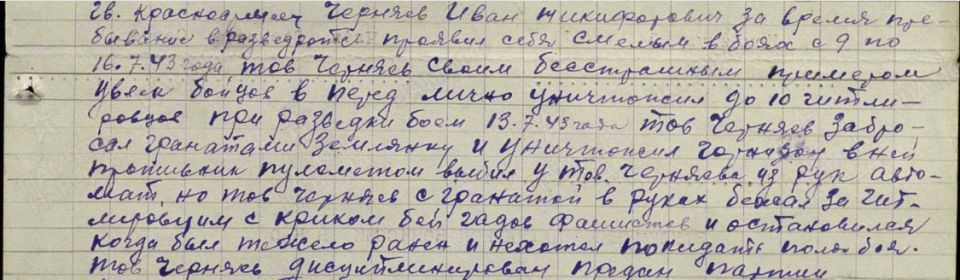 Гв. Красноармеец Черняев Иван Никифорович за время пре-
бывание в разведроте проявил себя смелым в боях с 9 по
16.7.43 года тов Черняев своим бесстрашным примером
увлек бойцов в перед лично уничтожил до 10 гитле-
ровцов при разведки боем 13.7.43 года тов Черняев забро-
сал гранатами землянку и уничтожил гарнизон в ней
противник пулеметом выбил у тов. Черняева из рук авто-
мат, но тов Черняев с гранатой в руках бежал за гит-
леровцим с криком бей гадов фашистов и остановился
когда был тяжело ранен и нехотел покидать поле боя.
тов Черняев дисциплинирован предан партии